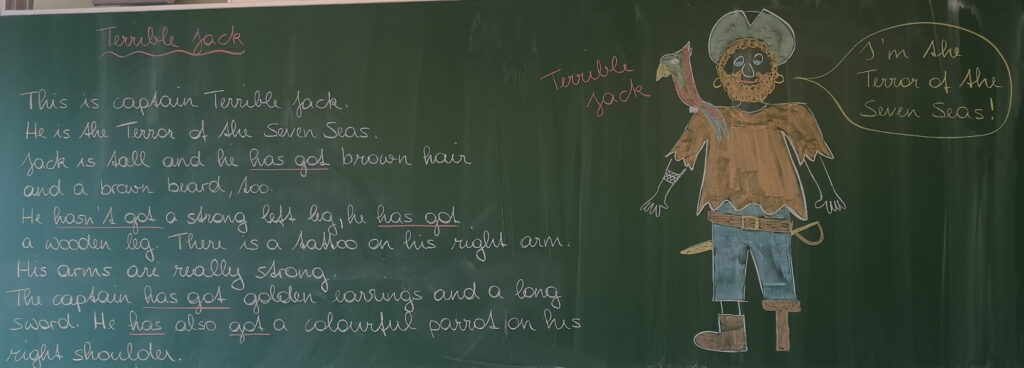 Terrible Jack
This is captain Terrible Jack.
He is the Terror of the Seven Seas.
Jack is tall and he has got brown hair
and a brown beard, too.
He hasn't got a strong left leg, he has got
a wooden leg. There is a tattoo on his right arm.
His arms are really strong.
The captain has got golden earrings and a long
sword. He has also got a colourful parrot on his
right shoulder.
Terrible
Jack
I'm the
Terror of the
Seven Seas!